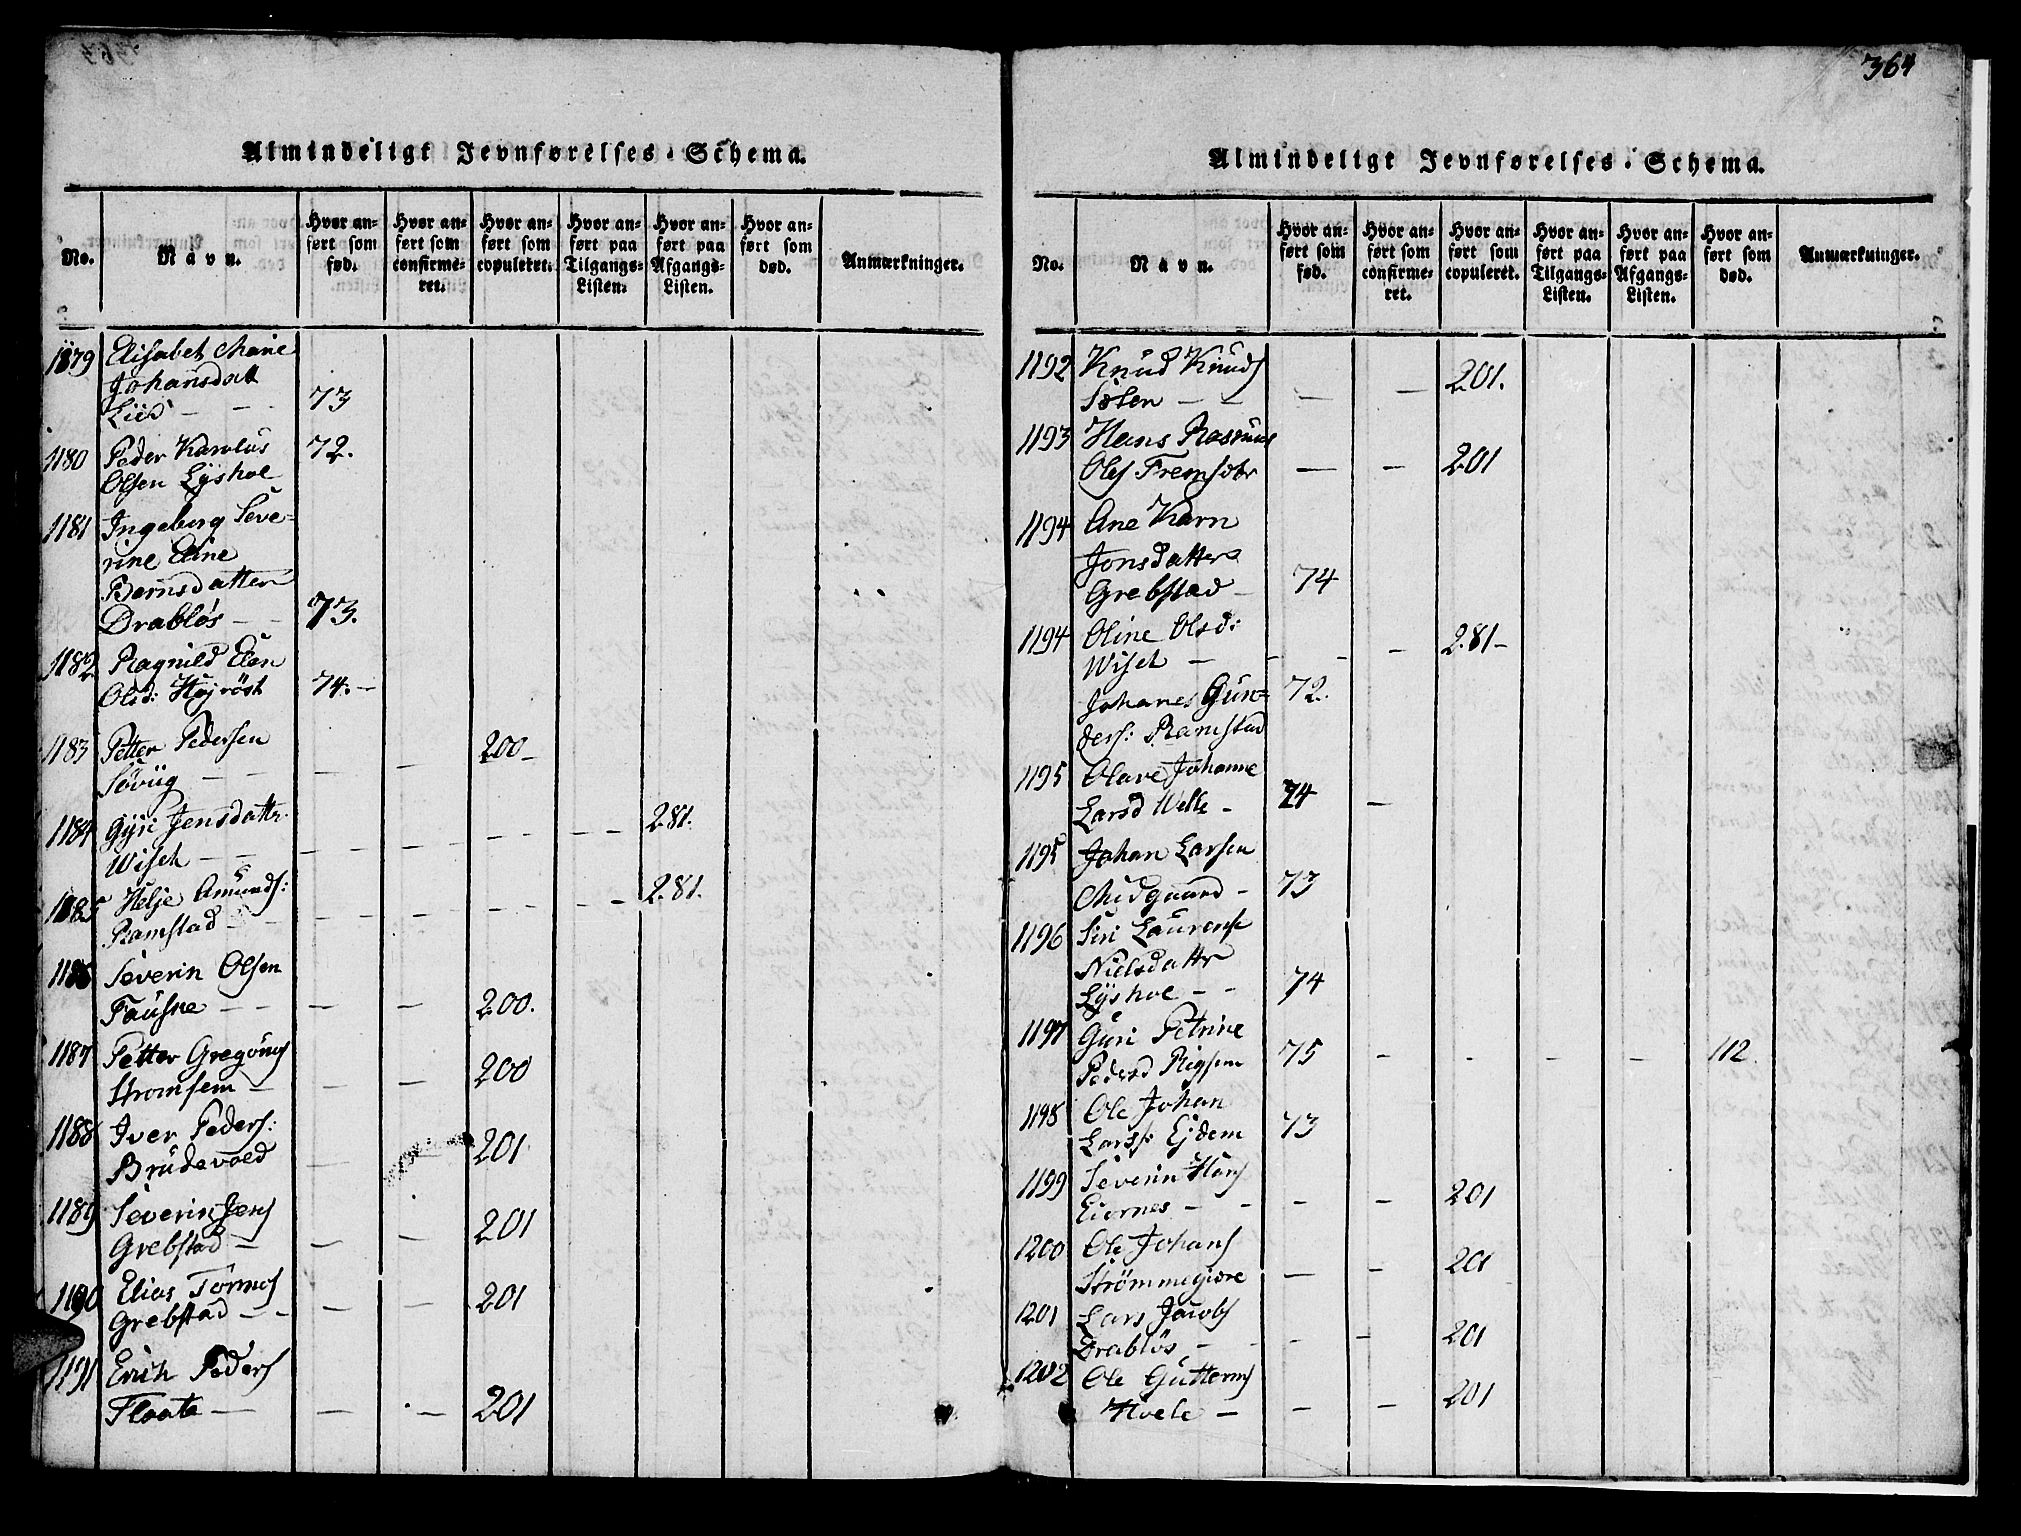 364
Almindeligt Jevnførelses-Schema.
No.
Navn.
Hvor an-
ført som
fød.
Hvor an-
ført som
confirme-
ret.
Hvor an-
ført som
copuleret.
Hvor an-
ført paa
Tilgangs-
Listen.
Hvor an-
ført paa
Afgangs-
Listen.
Hvor an-
ført som
død.
Anmærkninger.
1879 Elisabet Marie
Johansdatt
Lied - - 73
1180 Peder Karolus 72.
Olsen Lyshoe
1181 Ingeborg Seve=
rine Eline
Bernsdatter
Drabløs - - 73.
1182 Ragnild Elen
Olsd: Højröst 74. -
1183 Petter Pedersen 200 -
Søviig - - - -
1184 Gyri Jensdattr. - - - 281.
Wiset - - - - -
1185 Helje Amunds: 281.
Ramstad - - - - - - - -
1186 Severin Olsen
Fauske - - - - 200.
1187 Petter Gregörs 200
Stromsem - - -
1188 Iver Peders: 201
Brudevold - -
1189 Severin Jens 201
Grebstad - - -
1190 Elias Tormos 201
Grebstad - - - -
1191 Erich Peders
Flaate - - - 201
Almindeligt Jevnførelses-Schema.
No.
Navn.
Hvor an-
ført som
fød.
Hvor an-
ført som
confirme-
ret.
Hvor an-
ført som
copuleret.
Hvor an-
ført paa
Tilgangs-
Listen.
Hvor an-
ført paa
Afgangs-
Listen.
Hvor an-
ført som
død.
Anmærkninger.
1192 Knud Knuds 201.
Solen - - - -
1193 Hans Rasmus
Oles Fremsætr - - 201
1194 Ane Karn
Jonsdatter
Grebstad - 74
1194 Oline Olsd: 281 -
Wiset - - - -
Johanes Gun= 72.
ders: Ramstad
1195 Olave Johanne
Larsd Welle - 74 -
1195 Johan Larsen
Midgaard - 73
1196 Siri Laurense
Nielsdattr
Lyshoe - - 74
1197 Guri Petrine
Pedersd Rigsem 75 - - - - 112.
1198 Ole Johan
Larss: Ejdem 73
1199 Severin Hans
Eiernes - - - - 201
1200 Ole Johans
Strömmegiere - - 201
1201 Lars Jacobs
Drabløs - - - - 201
1202 Ole Guttorms
Hvele - - - 201